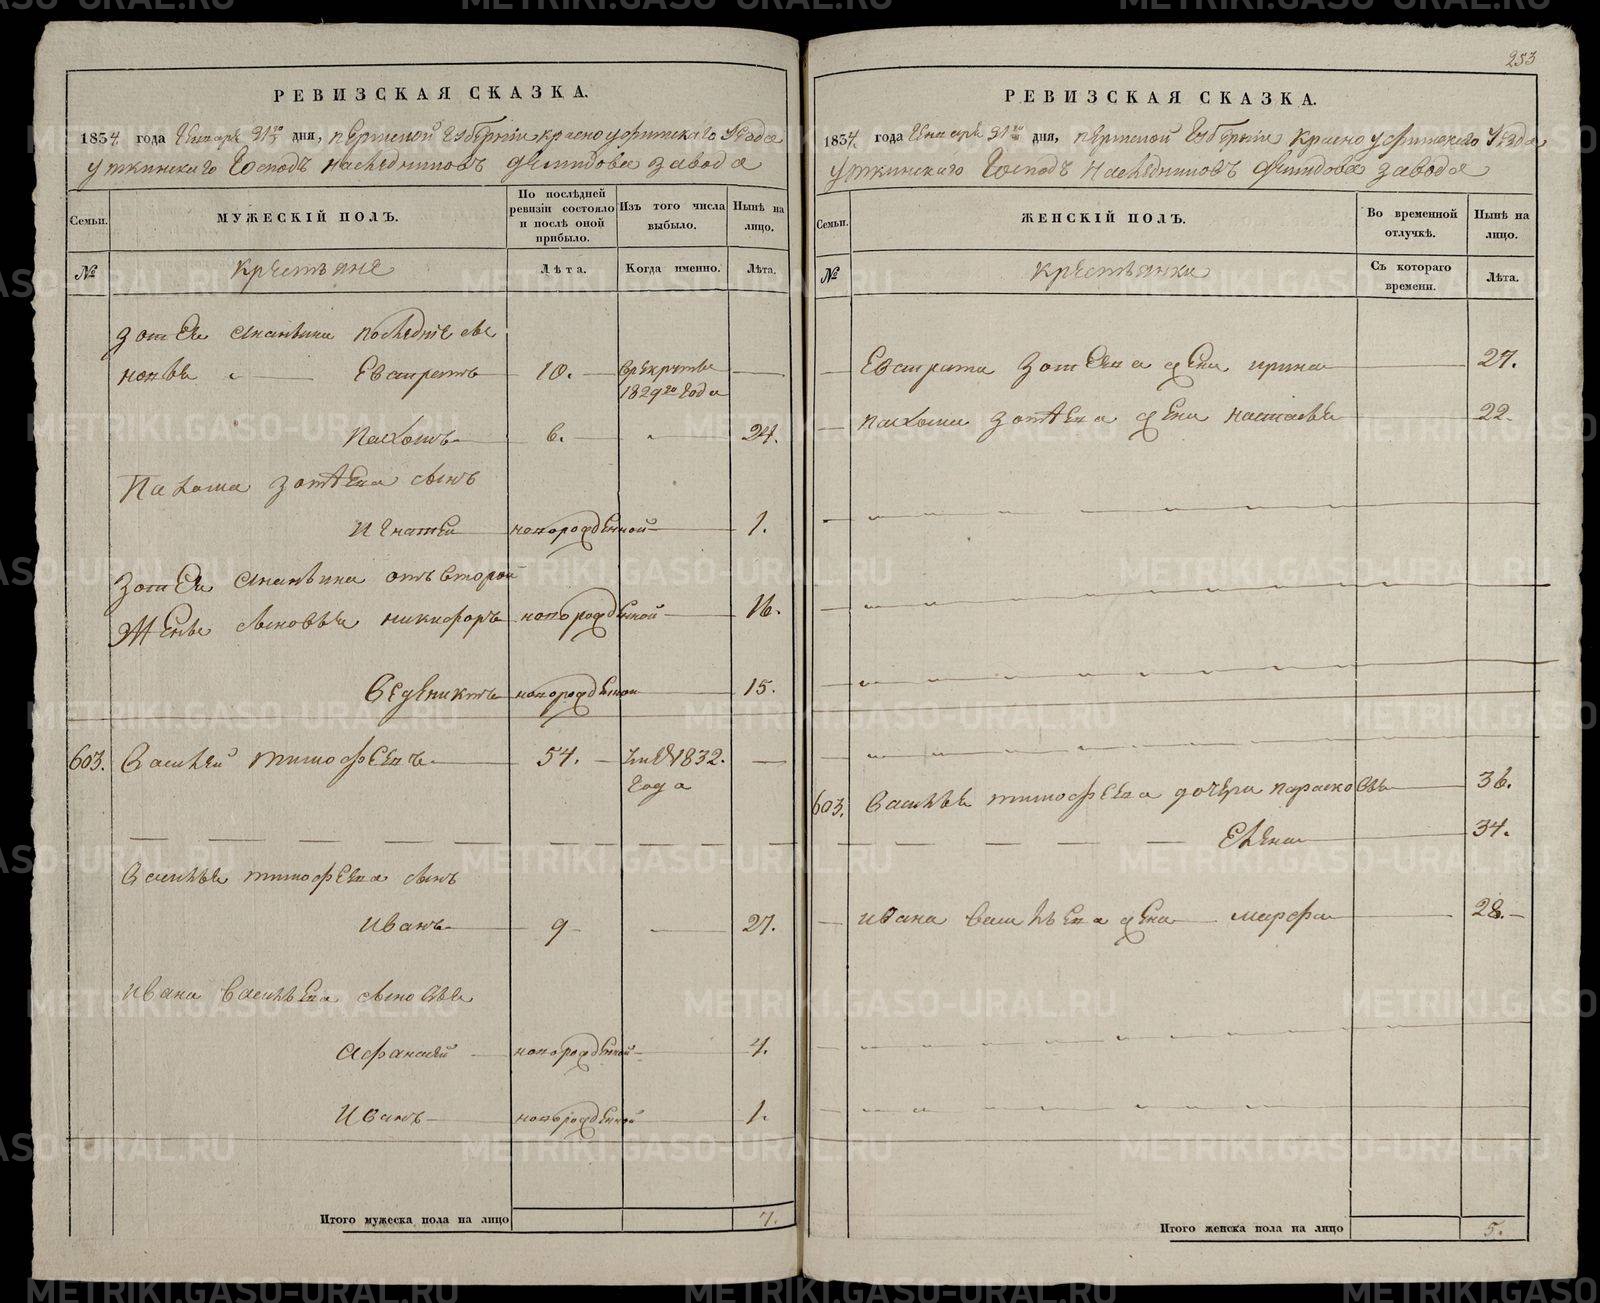 253
РЕВИЗСКАЯ СКАЗКА.
1834 года Генваря 31го дня, Пермской Губернїи Красноуфимскаго Уезда
Уткинскаго Господъ наследниковъ Демидова завода
Семьи.
МУЖЕСКІЙ ПОЛЪ.
По последней ревизіи состояло и послѣ оной прибыло.
Изъ того числа выбыло.
Нынѣ на лицо.
№
Крестьяне
Лѣта.
Когда именно.
Лѣта.
Зотея Ананьина последнїе сы
новье Евстратъ 10. в рекруты 1829го года
Пахомъ 6. 24.
Пахома Зотеева сынъ
Игнатей новорожденной 1.
Зотея Ананьина отъ второй
жены сыновья Никифоръ новорожденной 16.
Веденихтъ новорожденной 15.
603. Василей Тимофеевъ 54. 1832. года
Василья Тимофеева сынъ
Иванъ 9 27.
Ивана Васильева сыновья
Афанасей новорожденной 4.
Иванъ новорожденной 1.
Итого мужеска пола на лицо 7.
РЕВИЗСКАЯ СКАЗКА.
1834 года Генваря 31го дня, Пермской Губернїи Красноуфимскаго Уезда
Уткинскаго Господъ Наследниковъ Демидова завода
Семьи.
ЖЕНСКІЙ ПОЛЪ.
Во временной отлучкѣ.
Нынѣ на лицо.
№
Крестьянки
Съ котораго времени.
Лѣта.
Евстрата Зотеева жена Ирина 27.
Пахома Зотеева жена Настасья 22.
603. Василья Тимофеева дочери Парасковья 36.
Елена 34.
Ивана Васильева жена Марфа 28.
Итого женска пола на лицо 5.
METRIKI.GASO-URAL.RU